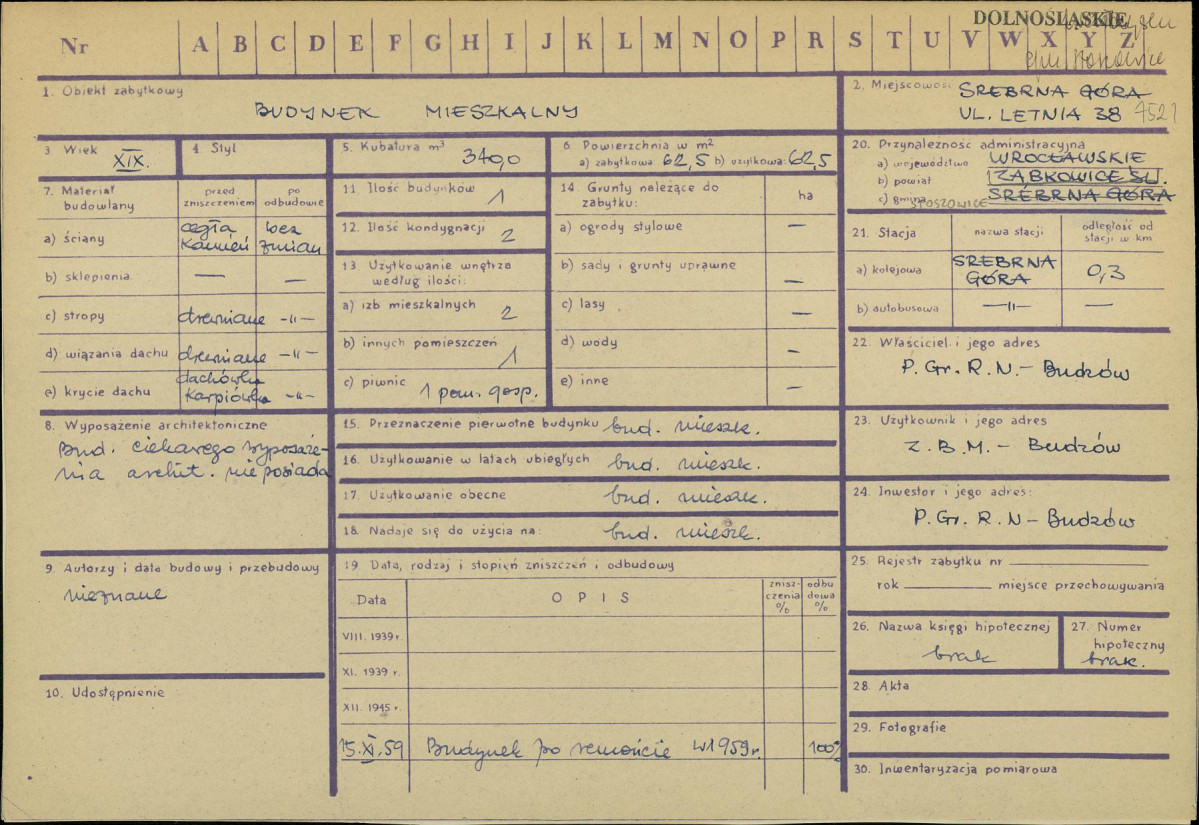 DOLNOŚLĄSKIE
Nr A B C D E F G H I J K L M N O P R S T U V W X Y Z
1. Obiekt zabytkowy
BUDYNEK MIESZKALNY
2. Miejscowość SREBRNA GÓRA
UL. LETNIA 38
3. Wiek
XIX.
4. Styl
5. Kubatura m³
340,0
6. Powierzchnia w m²
a) zabytkowa: 62,5 b) użytkowa: 62,5
20. Przynależność administracyjna
a) województwo WROCŁAWSKIE
b) powiat ZĄBKOWICE ŚL.
c) gmina STOSZOWICE SREBRNA GÓRA
7. Materiał budowlany
przed zniszczeniem
po odbudowie
a) ściany cegła kamień bez zmian
b) sklepienia — —
c) stropy drewniane -"-
d) wiązania dachu drewniane -"-
e) krycie dachu dachówka karpiówka -"-
11. Ilość budynków
1
12. Ilość kondygnacji
2
13. Użytkowanie wnętrza
według ilości:
a) izb mieszkalnych
2
b) innych pomieszczeń
1
c) piwnic 1 pom. gosp.
14. Grunty należące do
zabytku:
ha
a) ogrody stylowe —
b) sady i grunty uprawne —
c) lasy —
d) wody —
e) inne —
21. Stacja
nazwa stacji
odległość od
stacji w km
a) kolejowa SREBRNA GÓRA 0,3
b) autobusowa —"— —
22. Właściciel i jego adres
P. Gr. R. N. – Budzów
8. Wyposażenie architektoniczne
Bud. ciekawego wyposaże-
nia archit. nie posiada
15. Przeznaczenie pierwotne budynku bud. mieszk.
16. Użytkowanie w latach ubiegłych bud. mieszk.
17. Użytkowanie obecne bud. mieszk.
18. Nadaje się do użycia na: bud. mieszk.
23. Użytkownik i jego adres
Z. B. M. – Budzów
24. Inwestor i jego adres:
P. Gr. R. N – Budzów
9. Autorzy i data budowy i przebudowy
nieznane
10. Udostępnienie
19. Data, rodzaj i stopień zniszczeń i odbudowy
Data
OPIS
znisz-
czenia
%
odbu
dowa
%
VIII. 1939 r.
XI. 1939 r.
XII. 1945 r.
15.XI.59 Budynek po remoncie w 1959 r. 100%
25. Rejestr zabytku nr
rok miejsce przechowywania
26. Nazwa księgi hipotecznej
brak
27. Numer
hipoteczny
brak.
28. Akta
29. Fotografie
30. Inwentaryzacja pomiarowa